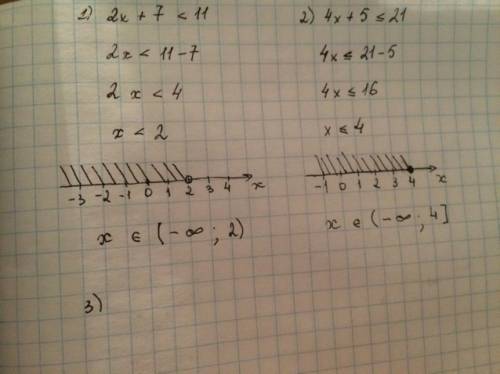 1) 2x + 7 < 11
2x < 11 - 7
2 x < 4
x < 2
-3 -2 -1 0 1 2 3 4 x
x ∈ (-∞ ; 2)
2) 4x + 5 ≤ 21
4x ≤ 21 - 5
4x ≤ 16
x ≤ 4
-1 0 1 2 3 4 x
x ∈ (-∞ ; 4]
3)